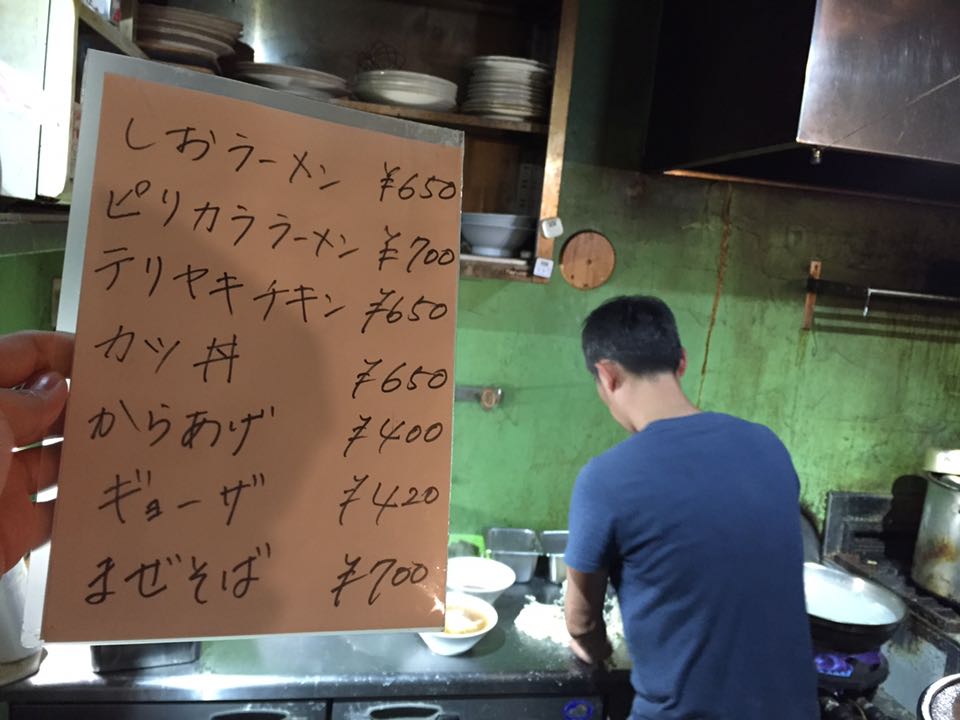 しおラーメン ¥650
ピリカララーメン ¥700
テリヤキチキン ¥650
カツ丼 ¥650
からあげ ¥400
ギョーザ ¥420
まぜそば ¥700